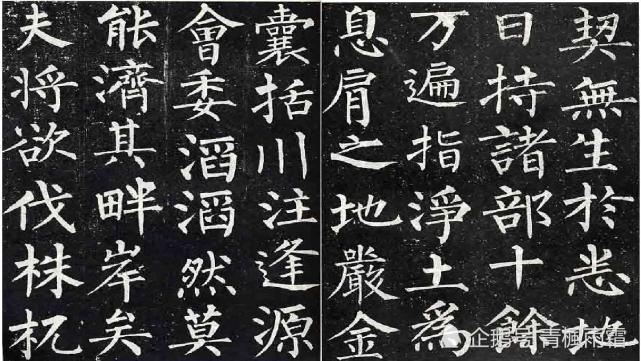 契無生於悉地
日持諸部十餘
万遍指淨土爲
息肩之地嚴金
囊括川注逢源
會委滔滔然莫
能濟其畔岸矣
夫將欲伐株杌
企鹅号 青楓雨霜